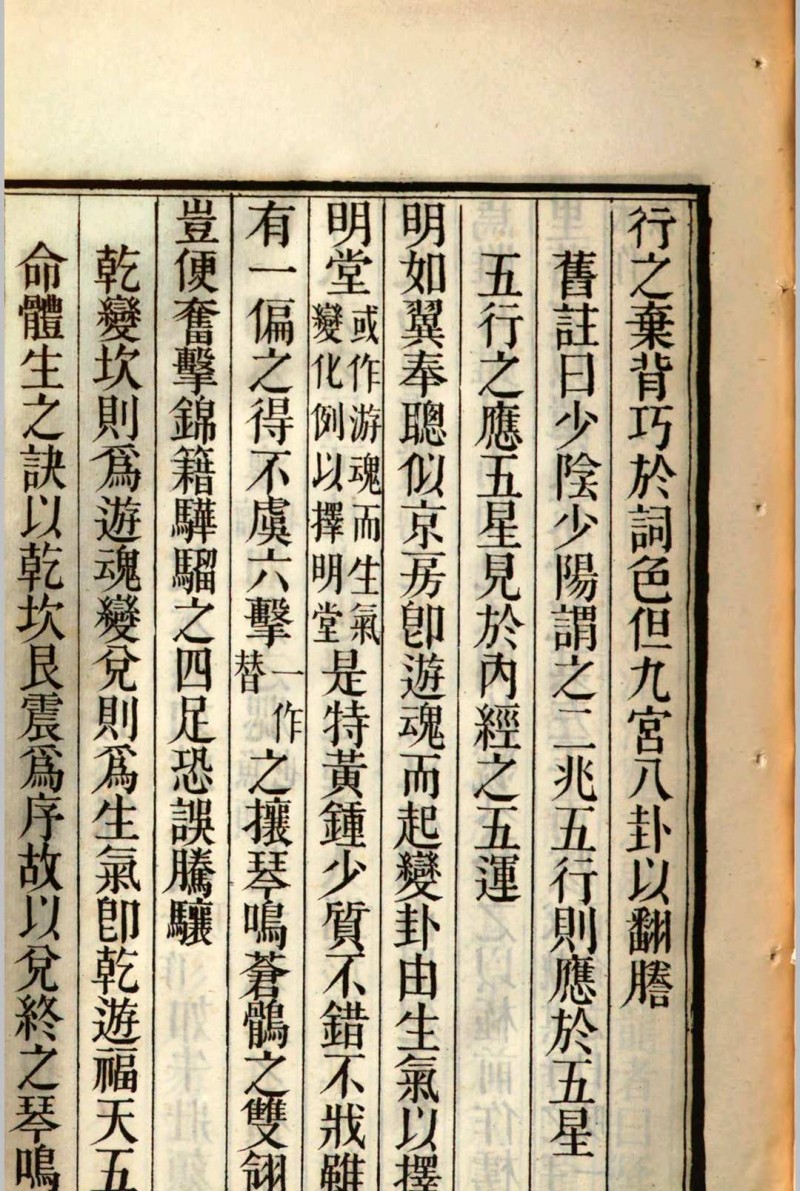 行之棄背巧於詞色但九宮八卦以翻謄
舊註曰少陰少陽謂之二兆五行則應於五星
五行之應五星見於內經之五運
明如翼奉聰似京房卽遊魂而起變卦由生氣以擇
明堂
或作游魂而生氣
變化例以擇明堂
是特黃鍾少質不錯不戕雖
有一偏之得不虞六擊
一作
替
之攘琴鳴蒼鶻之雙翎
豈便奮擊錦籍驊騮之四足恐誤騰驤
乾變坎則爲遊魂變兌則爲生氣卽乾遊福天五
命體生之訣以乾坎艮震爲序故以兌終之琴鳴